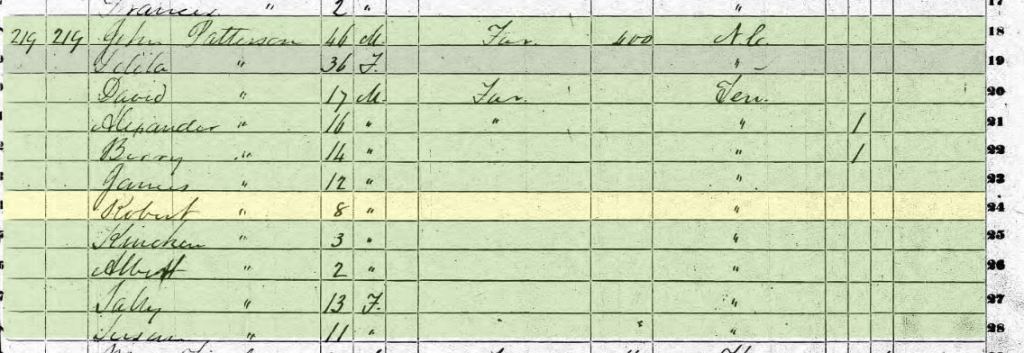 Frances " 2 " " 17
219 219 John Patterson 46 M. Far. 400 N.C. 18
" 36 F. " 19
David " 17 M. Far. Ten. 20
Alexander " 16 " " " 1 21
Berry " 14 " " 1 22
James " 12 " " 23
Robert " 8 " " 24
Kinchen " 3 " " 25
Albert " 2 " " 26
Sally " 13 F. " 27
Susan " 11 " " " 28